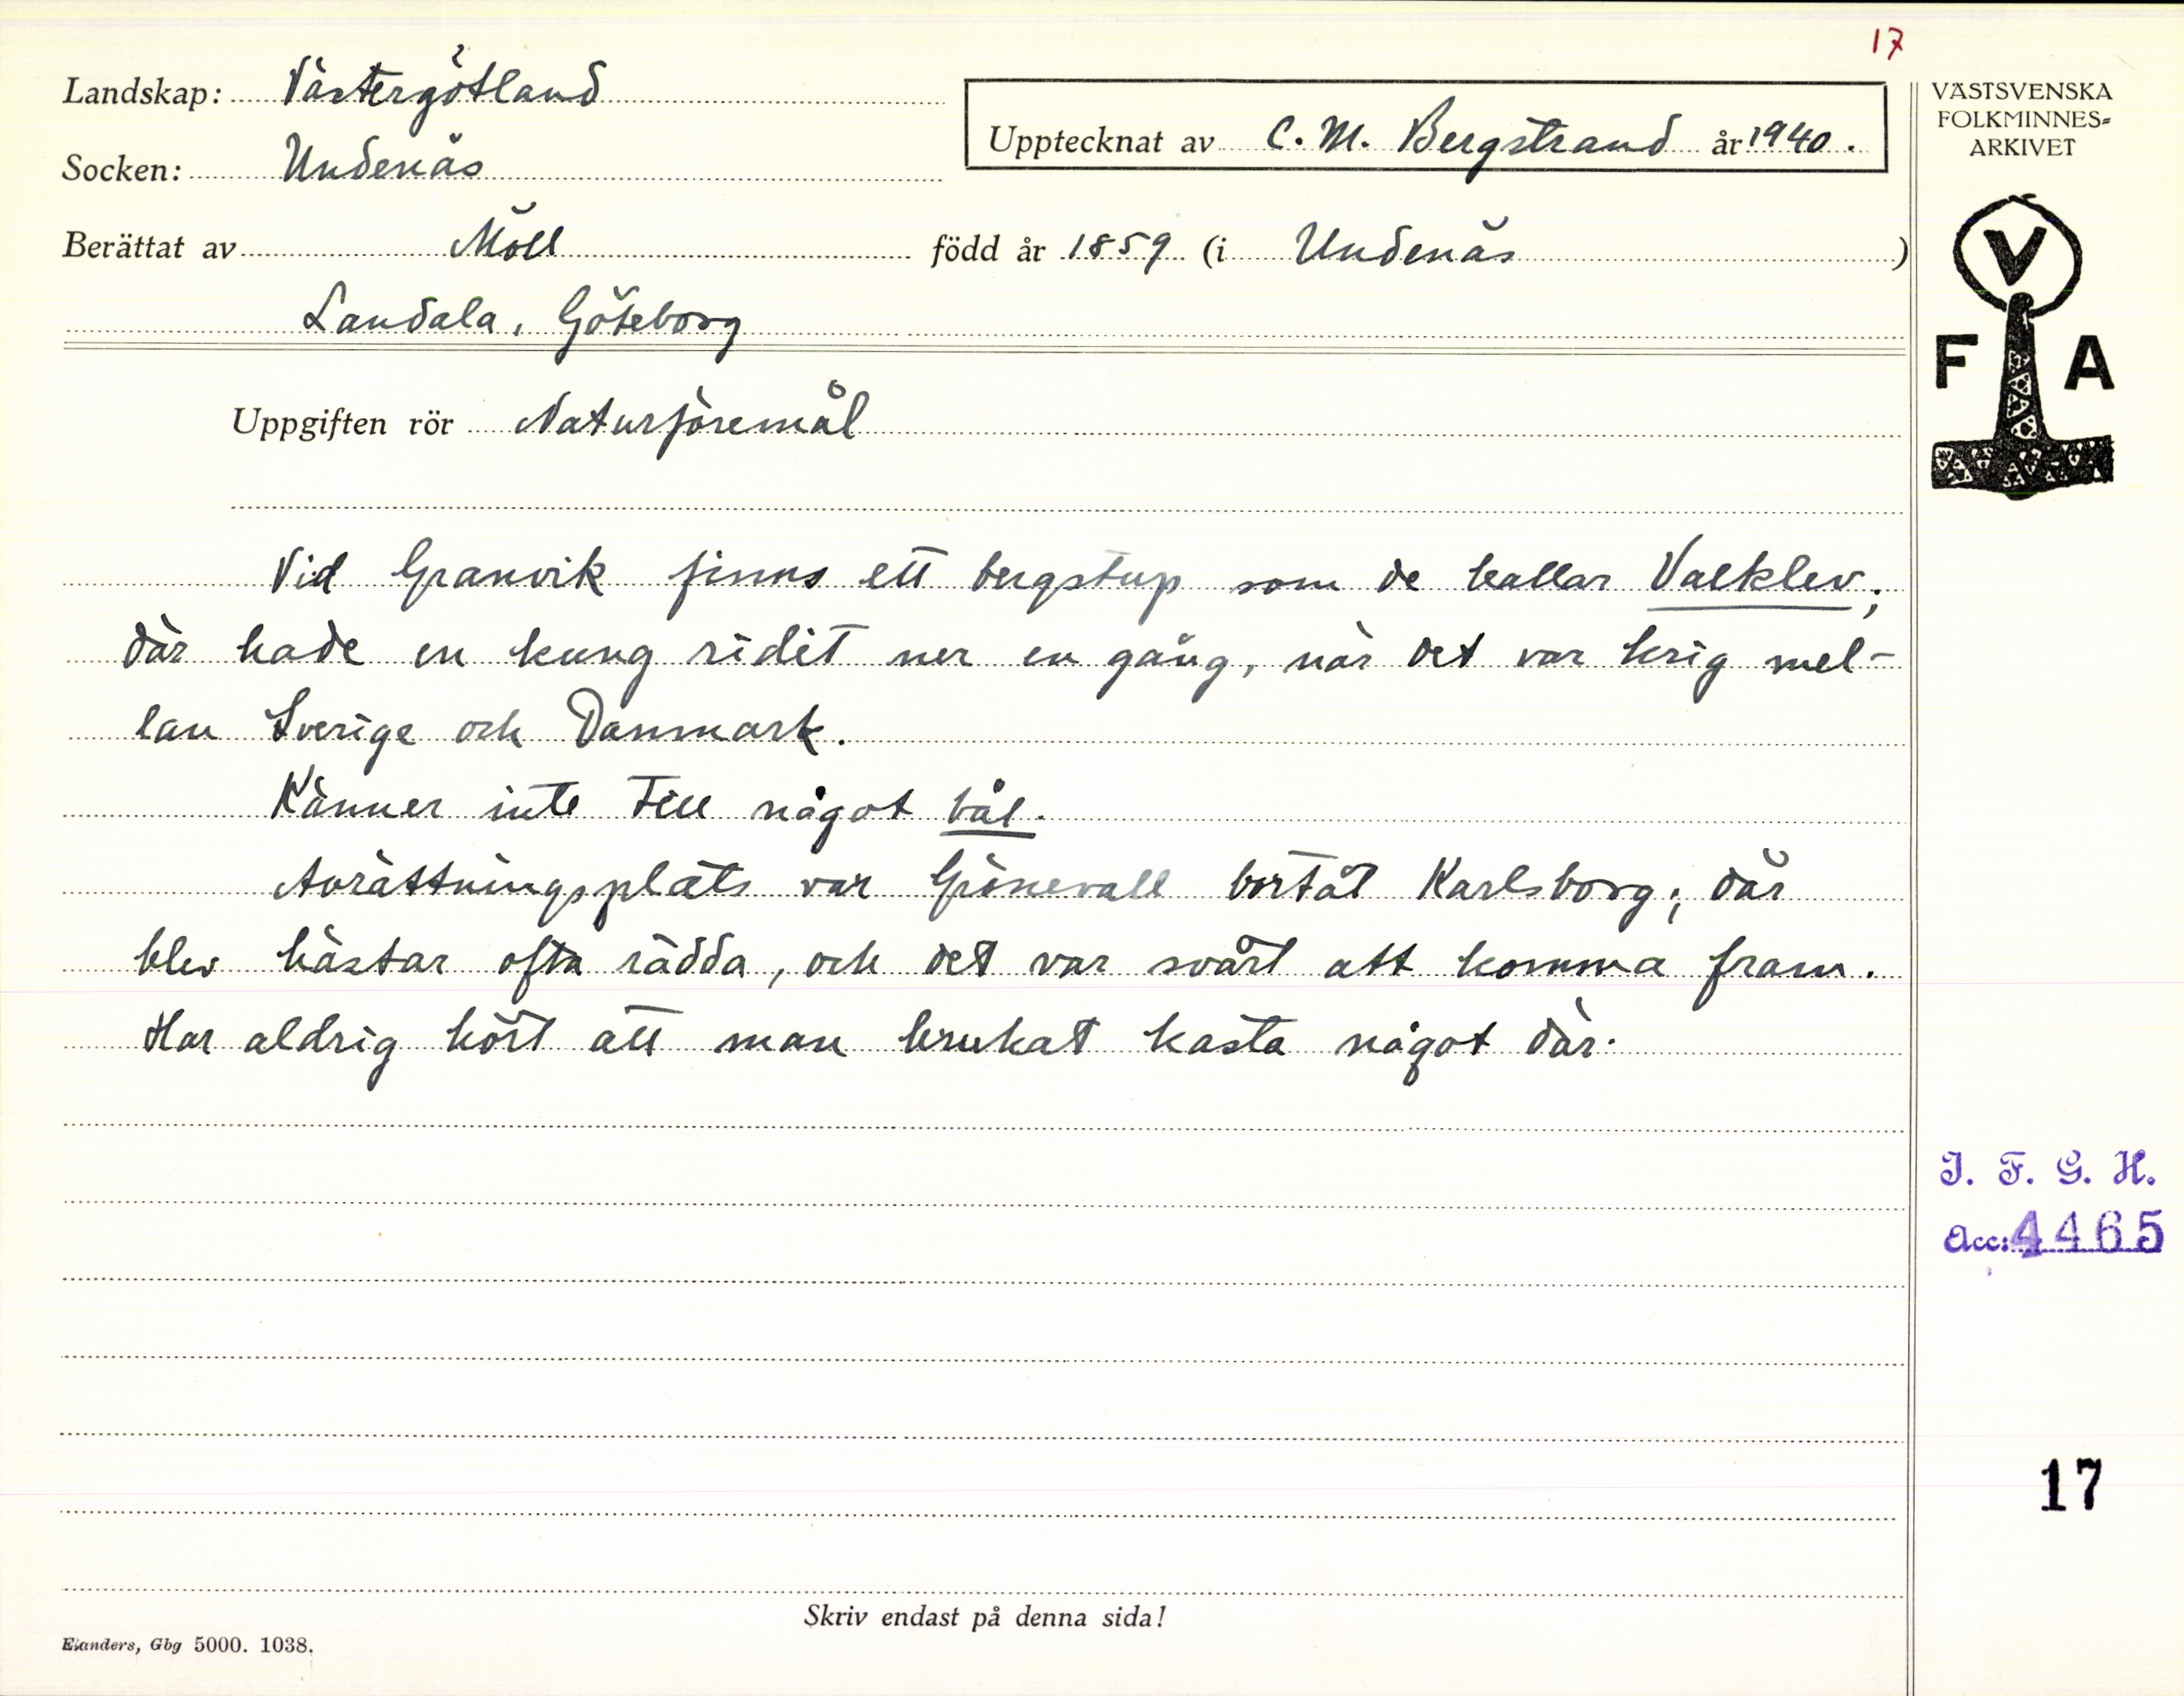 17
Landskap: Västergötland
Socken: Undenäs
Upptecknat av C. M. Bergstrand år 1940.
Berättat av Möll född år 1859 (i Undenäs)
Landala, Göteborg
Uppgiften rör Naturföremål
Vid Granvik finns ett bergstup som de kallar Valklev;
där hade en kung ridit ner en gång, när det var krig mel-
lan Sverige och Danmark.
Känner inte till något bål.
Avrättningsplats var Grönevall bortåt Karlsborg; där
blev hästar ofta rädda, och det var svårt att komma fram.
Har aldrig hört att man brukat kasta något där.
Skriv endast på denna sida!
Elanders, Gbg 5000. 1038.
VÄSTSVENSKA
FOLKMINNES=
ARKIVET
V
F A
I. F. G. H.
Acc: 4465
17